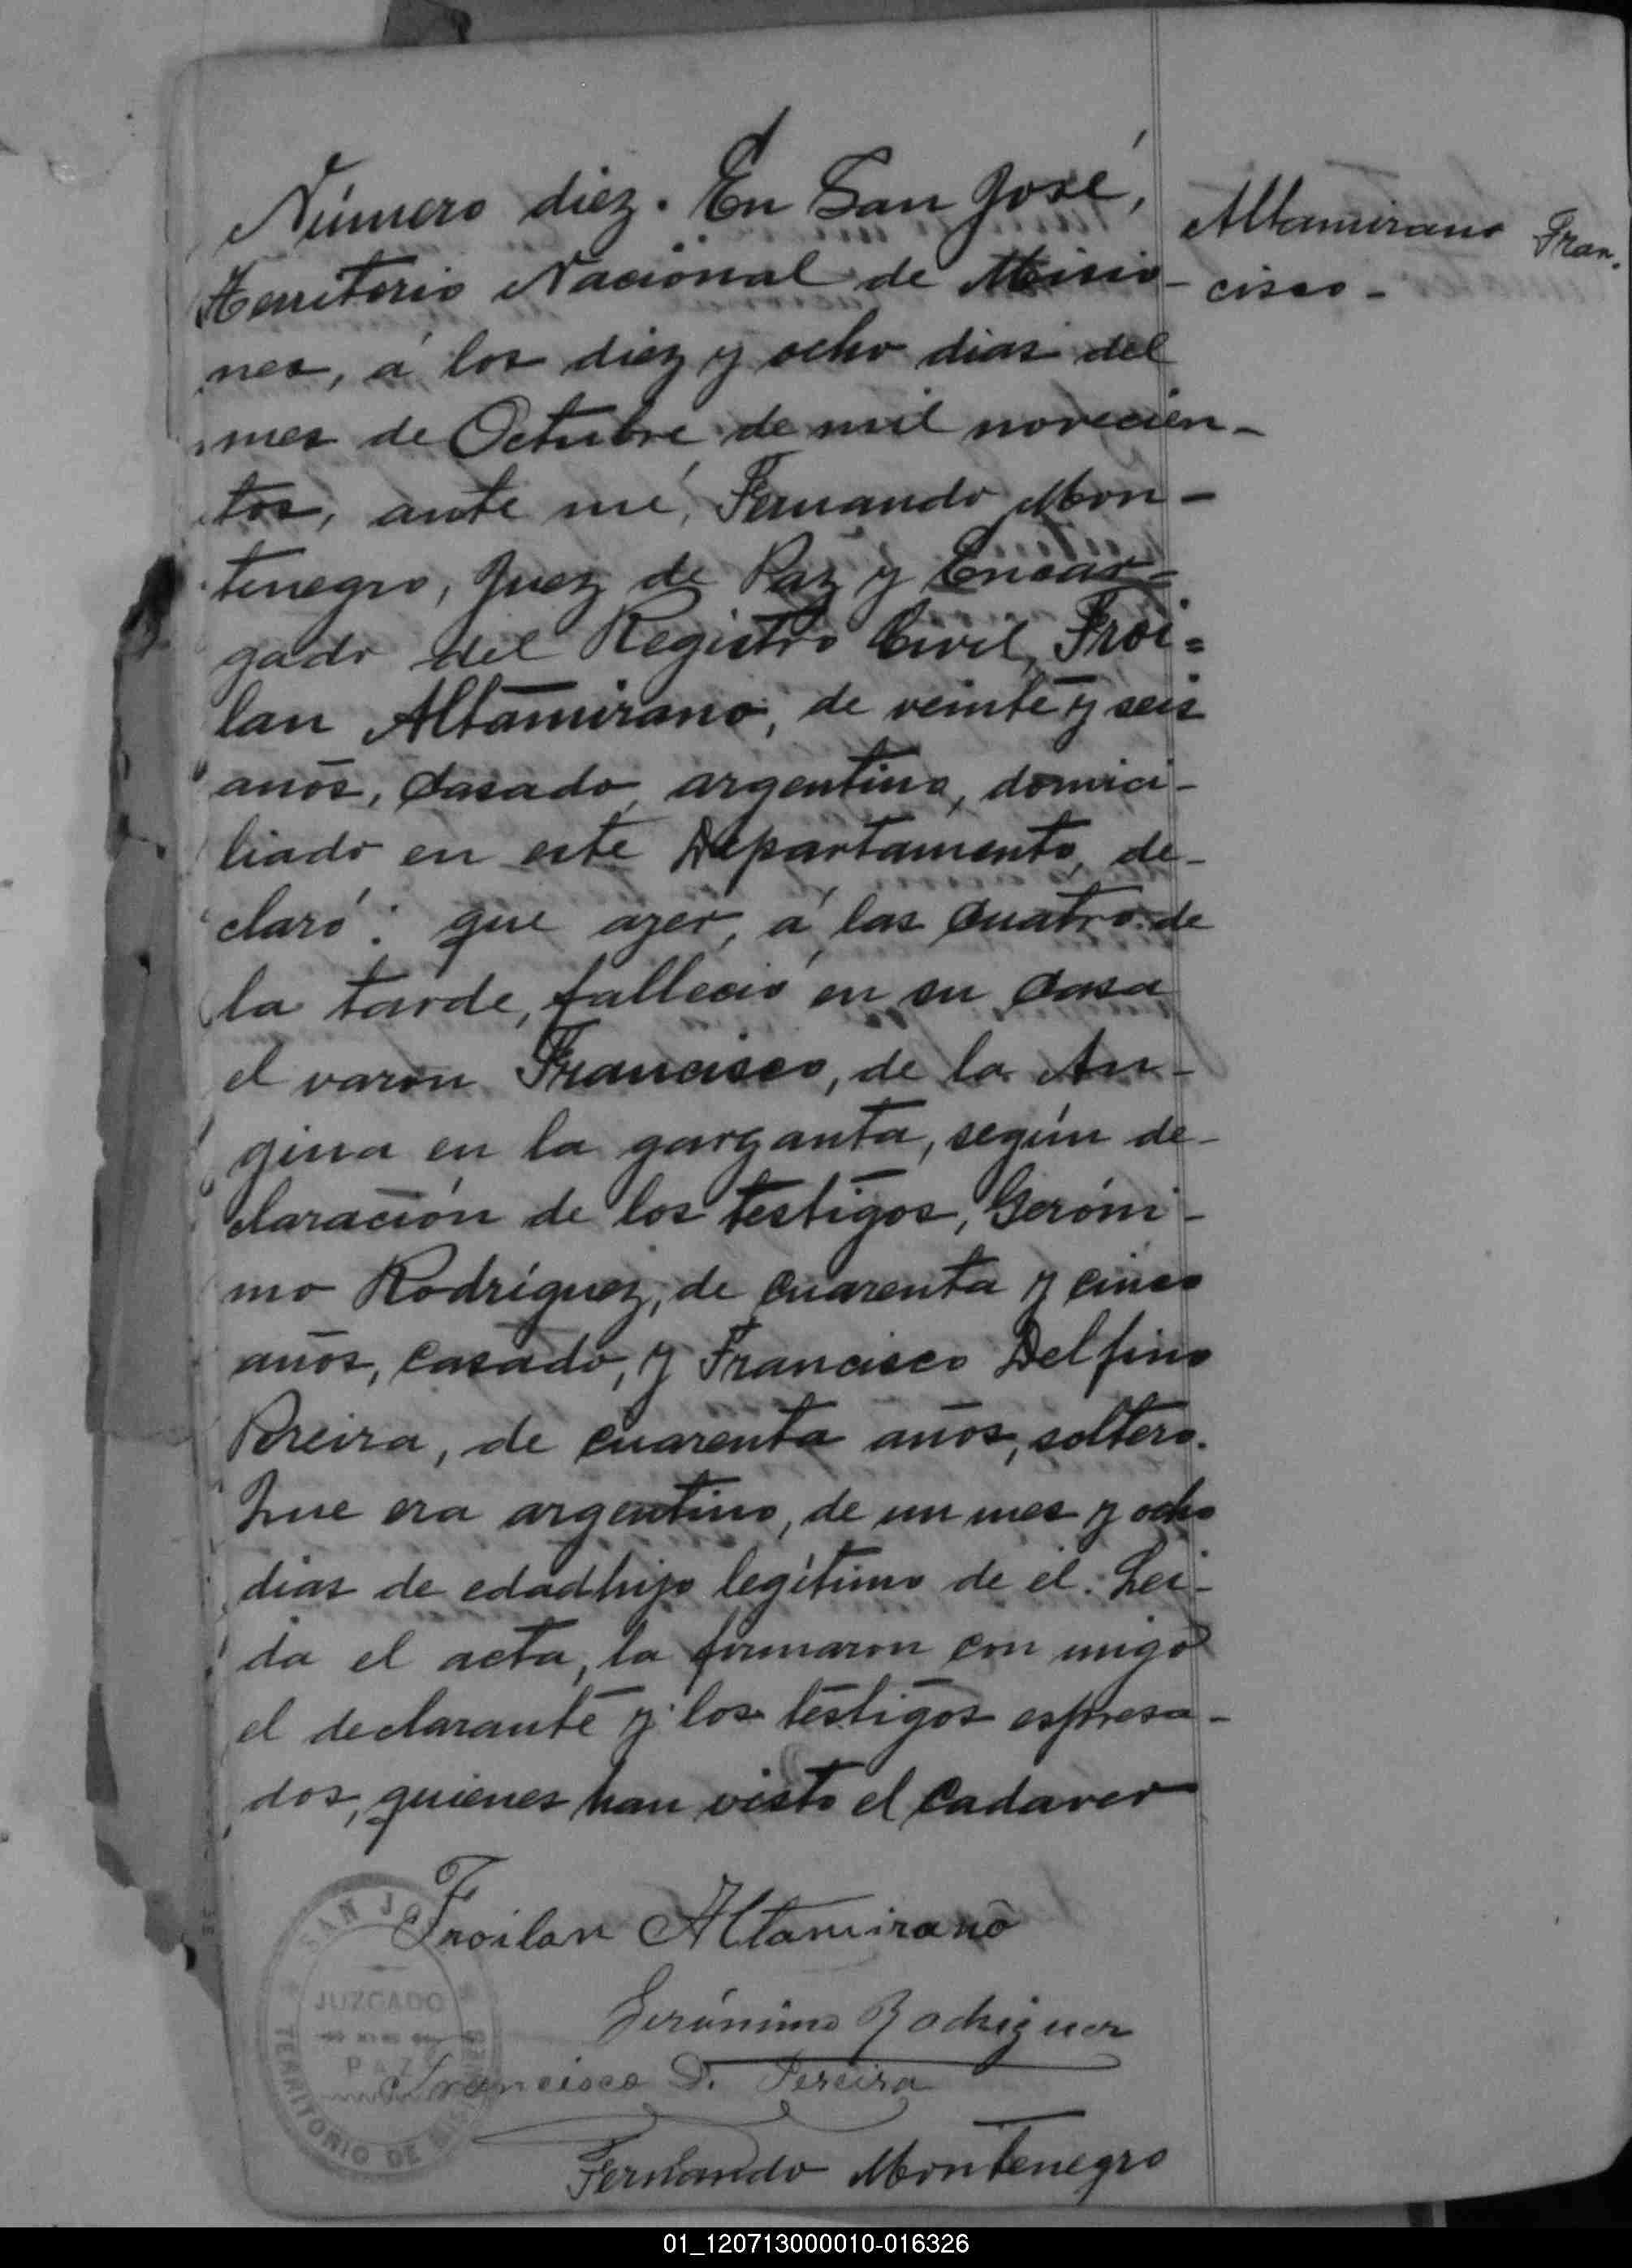 Número diez. En San José,
Territorio Nacional de Misio-
nes, á los diez y ocho dias del
mes de Octubre de mil novecien-
tos, ante mí, Fernando Mon-
tenegro, Juez de Paz y Encar-
gado del Registro Civil, Froi=
lan Altamirano, de veinte y seis
años, casado, argentino, domici-
liado en este Departamento, de-
claró: que ayer, á las cuatro de
la tarde, falleció en su casa
el varon Francisco, de la An-
gina en la garganta, según de-
claración de los testigos, Geróni-
mo Rodríguez, de cuarenta y cinco
años, casado, y Francisco Delfino
Pereira, de cuarenta años, soltero.
Que era argentino, de un mes y ocho
dias de edad hijo legítimo de él. Lei-
da el acta, la firmaron con migo
el declarante y los testigos espresa-
dos, quienes han visto el cadaver
Altamirano Fran.
cisco-
Froilan Altamirano
Gerónimo Rodriguez
Francisco D. Pereira
Fernando Montenegro
SAN JO
JUZGADO
PAZ
TERRITORIO DE MISIONES
01_120713000010-016326